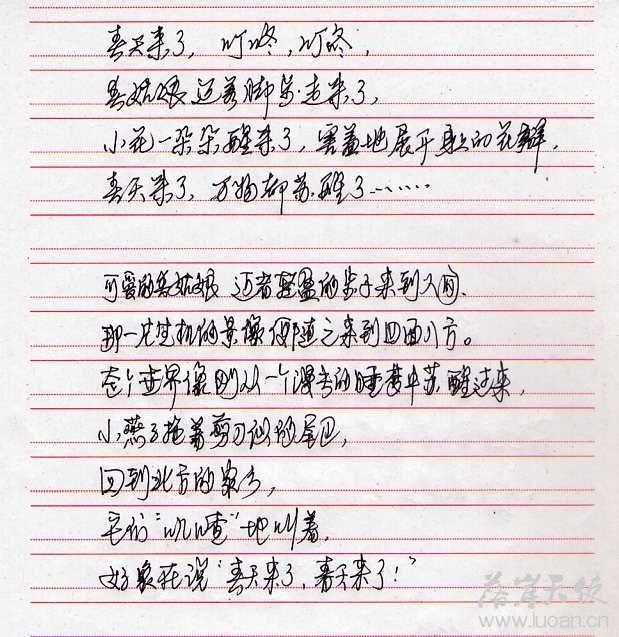 春天来了，叮咚，叮咚，
春姑娘迈着脚步走来了，
小花一朵朵醒来了，害羞地展开身上的花瓣，
春天来了，万物都苏醒了……
可爱的春姑娘迈着轻盈的步子来到人间，
那一片生机的景像便随之来到四面八方。
整个世界像刚从一个漫长的睡梦中苏醒过来，
小燕子拖着剪刀似的尾巴，
回到北方的家乡，
它们“叽喳”地叫着，
好象在说“春天来了，春天来了！”
落岸天使
www.luoan.cn